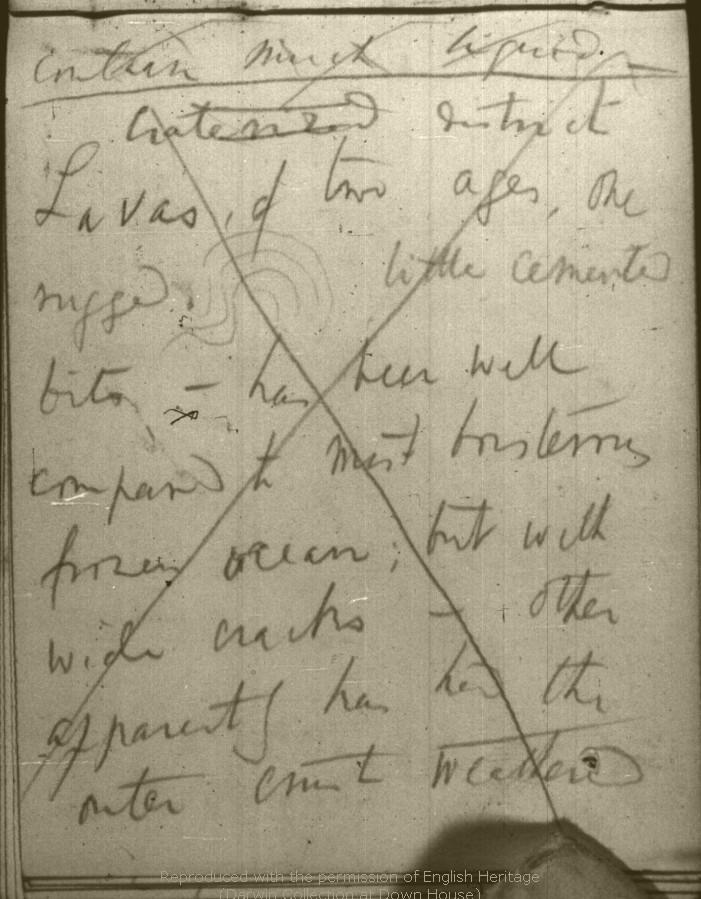 contain much liquid. —
Craterized district
Lavas, of two ages, one
rugged. little cemented
bits, — has been well
compared to most boisterous
frozen ocean; but with
wide cracks — other
apparently has had the
outer crust weathered
Reproduced with the permission of English Heritage
(Darwin Collection at Down House)